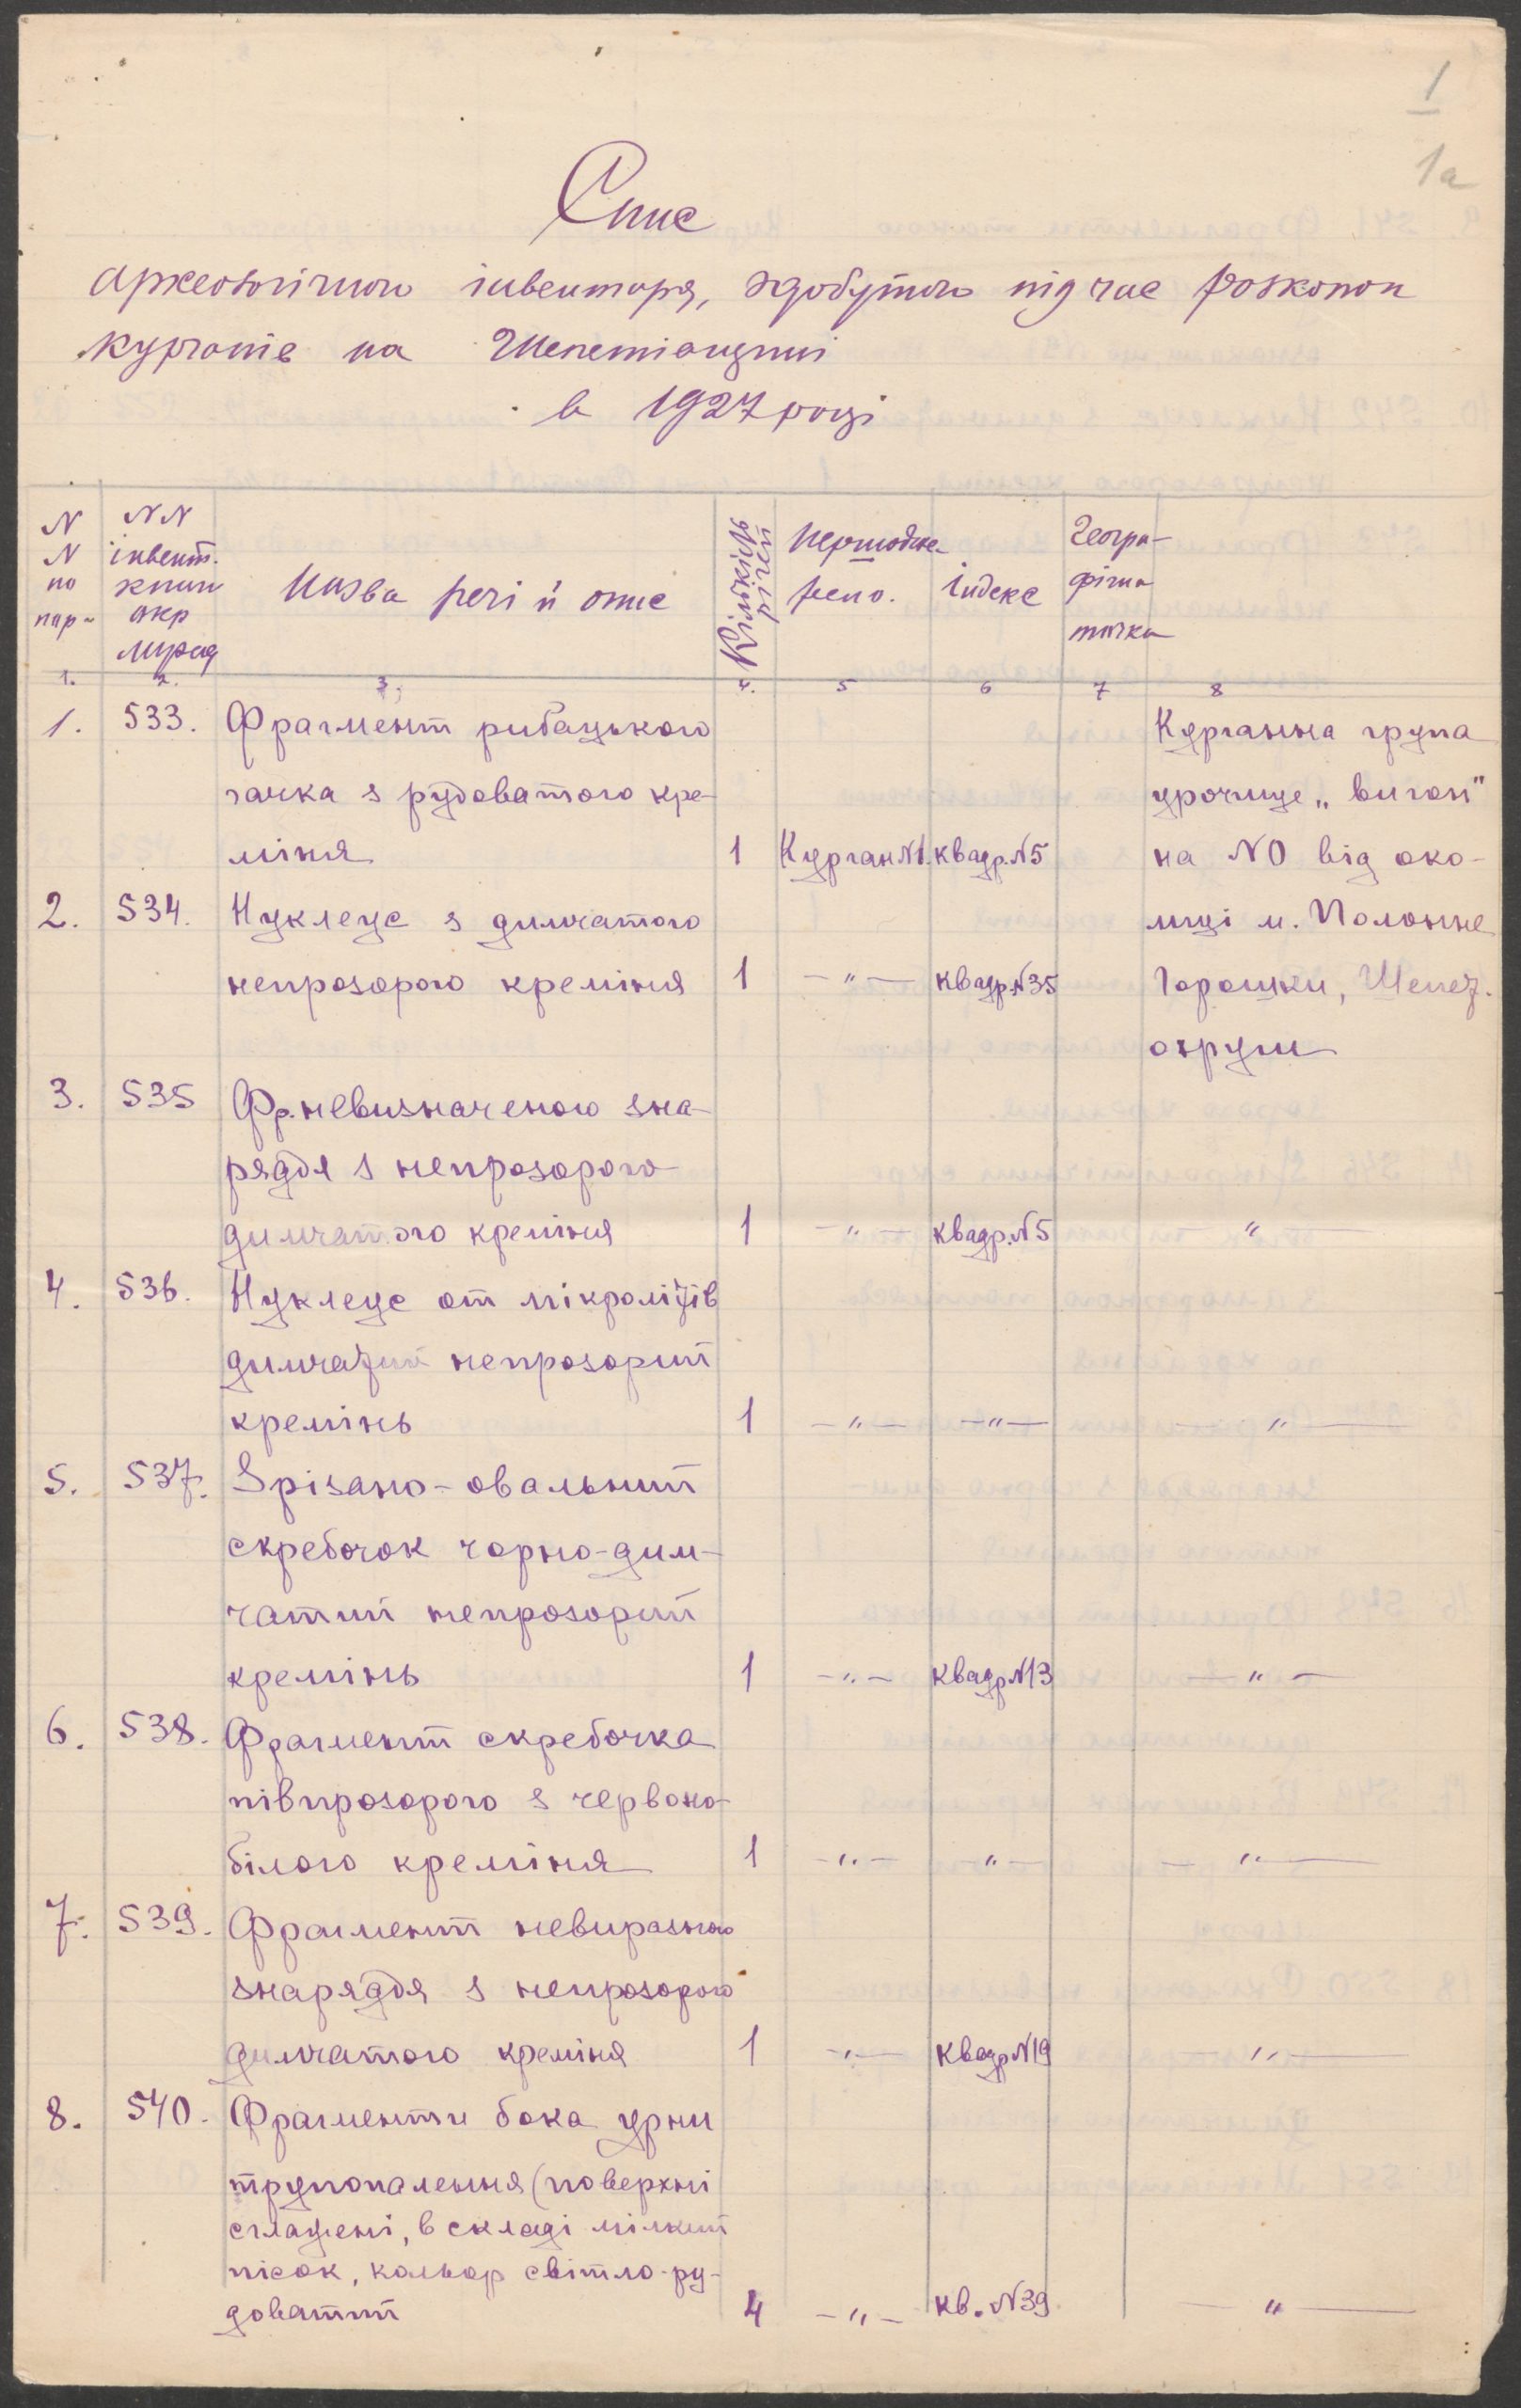 1
1а
Спис
археологічного інвентаря, здобутого під час розкопок
курганів на Шепетівщині
в 1927 році
N N по пор-
NN інвент. книги окр музею
Назва речі й опис
Кількість річей
Першодже- рело.
Індекс
Геогра- фічна точка
1. 2. 3. 4. 5 6 7 8
1. 533. Фрагмент рибацького Курганна група
гачка з рудоватого кре- урочище „вигон"
міня 1 Курган N1. квадр. N5 на NO від око-
2. 534. Нуклеус з димчатого лиці м. Полонне
непрозорого креміня 1 —"— квадр. N35 Горошки, Шепет.
округи
3. 535 Фр. невизначеного зна-
ряддя з непрозорого
димчатого креміня 1 —"— квадр. N5 "—
4. 536. Нуклеус от мікролітів
димчатий непрозорий
кремінь 1 —"— —"— —"—
5. 537. Зрізано-овальний
скребочок чорно-дим-
чатий непрозорий
кремінь 1 —"— квадр. N13 —"—
6. 538. Фрагмент скребочка
півпрозорого з червоно-
білого креміня 1 —"— —"— —"—
7. 539. Фрагмент невиразного
знаряддя з непрозорого
димчатого креміня 1 —"— квадр N19 —"—
8. 540. Фрагменти бока урни
трупопалення (поверхні
сглажені, в складі мілкий
пісок, кольор світло-ру-
доватий 4 —"— кв. N39 —"—